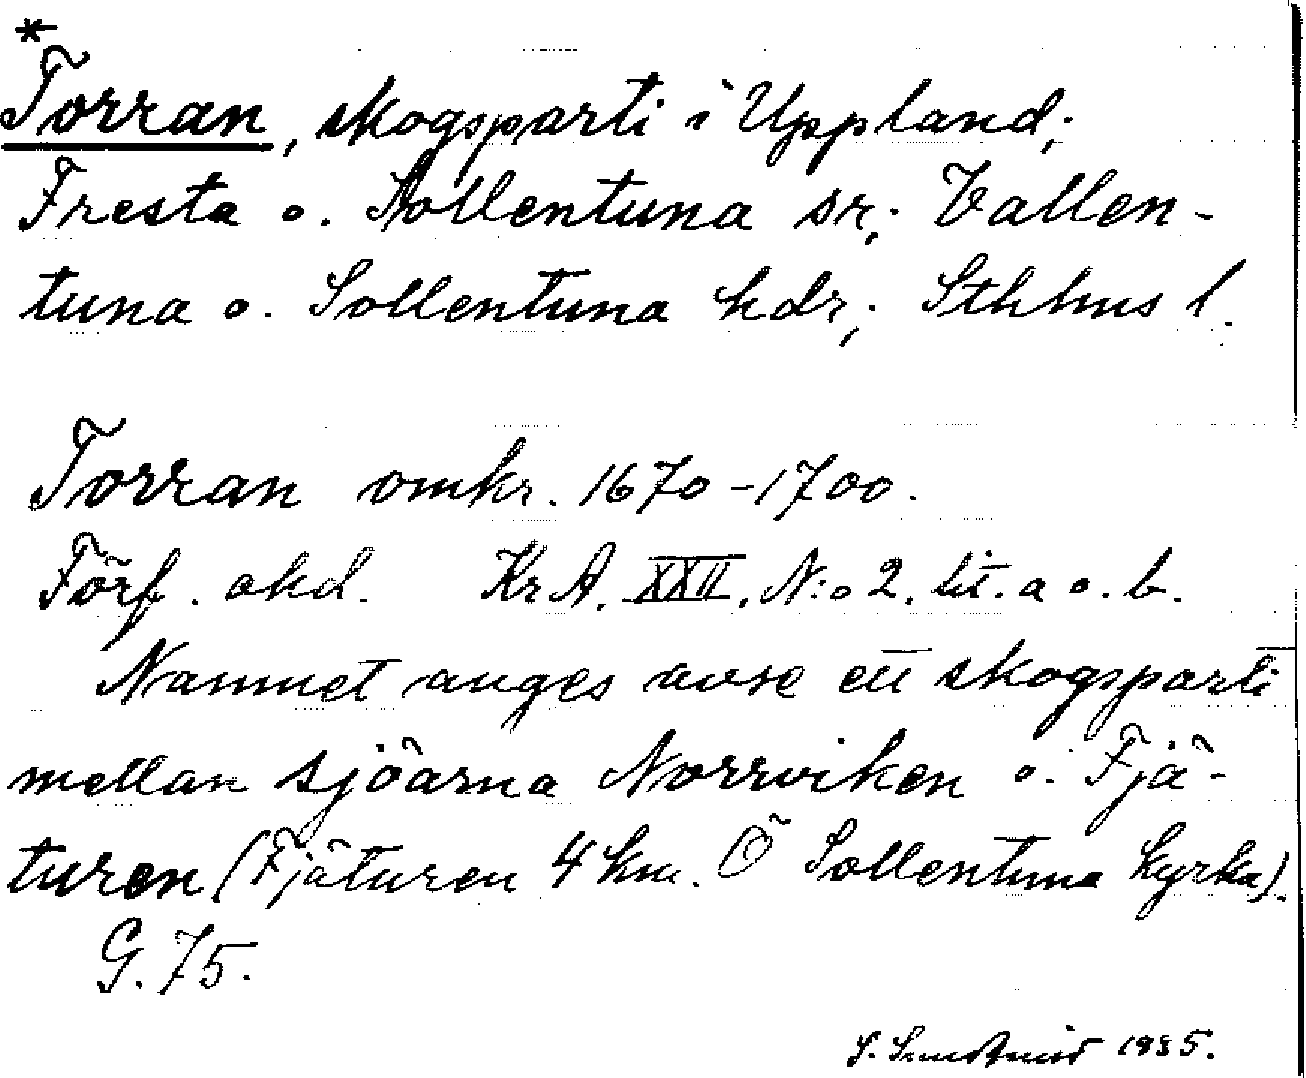 *
Torran, skogsparti i Uppland;
Fresta o. Sollentuna sr; Vallen-
tuna o. Sollentuna hdr; Sthlms l.
Torran omkr. 1670-1700.
Förf. okd. KrA. XXII. N:o 2. lit. a o. b.
Namnet anges avse ett skogsparti
mellan sjöarna Norrviken o. Fjä-
turen (Fjäturen 4 km. Ö Sollentuna kyrka).
G. 75.
1935.